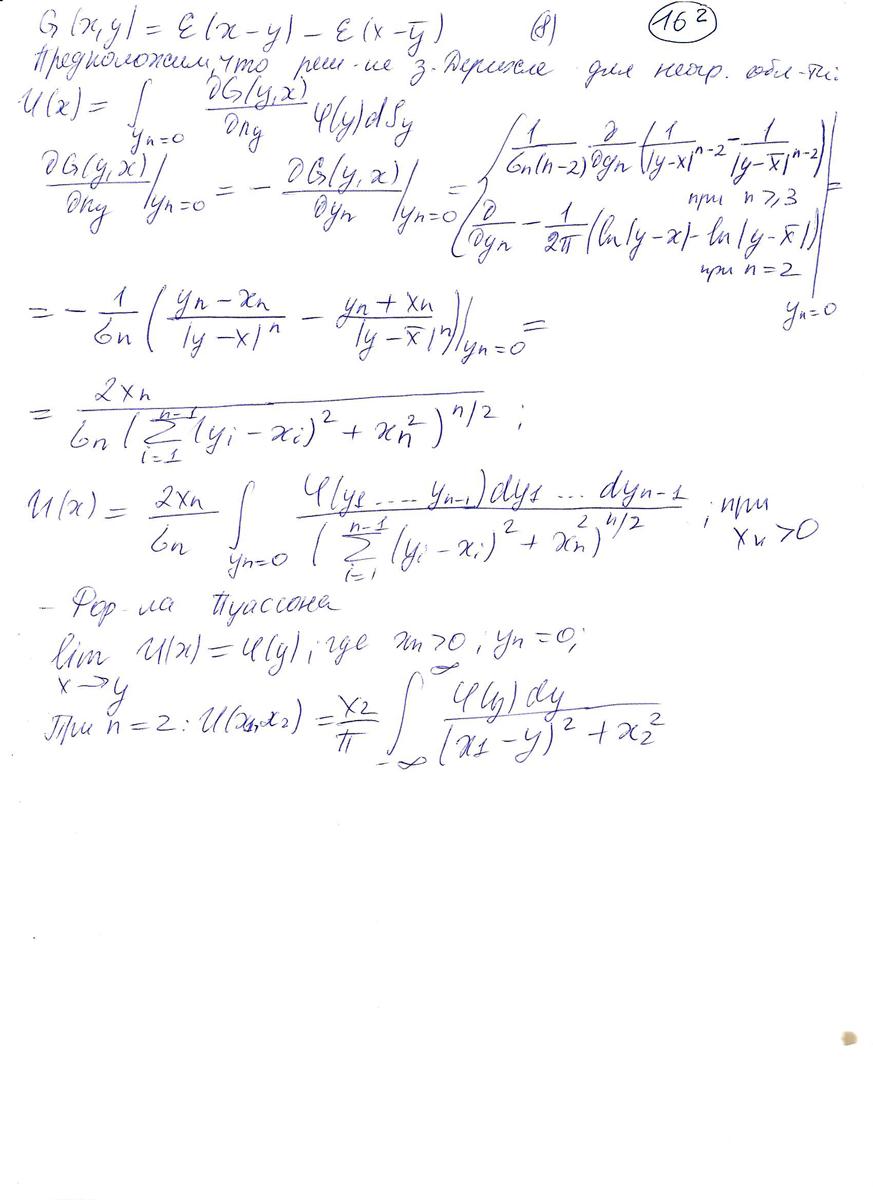 G(x,y) = Ɛ(x-y) - Ɛ(x-ȳ) (8) 16²
Предположим, что реш-ие з. Дерихле для неогр. обл-ти:
U(x) = ∫_{yn=0} ∂G(y,x)/∂ny φ(y)dSy
∂G(y,x)/∂ny |_{yn=0} = - ∂G(y,x)/∂yn |_{yn=0} = { 1/(σn(n-2)) ∂/∂yn (1/|y-x|^{n-2} - 1/|y-x̄|^{n-2}) при n≥3
∂/∂yn - 1/2π (ln|y-x| - ln|y-x̄|) при n=2 |_{yn=0} =
= - 1/σn ( (yn-xn)/|y-x|^n - (yn+xn)/|y-x̄|^n )|_{yn=0} =
= 2xn / (σn (∑_{i=1}^{n-1} (yi-xi)² + xn²)^{n/2}) ;
U(x) = 2xn/σn ∫_{yn=0} φ(y1....yn-1)dy1 ... dyn-1 / (∑_{i=1}^{n-1} (yi-xi)² + xn²)^{n/2} ; при xn>0
- Фор-ла Пуассона
lim_{x→y} U(x) = φ(y), где xn>0; yn=0;
При n=2: U(x1,x2) = x2/π ∫_{-∞}^{∞} φ(y)dy / ((x1-y)² + x2²)